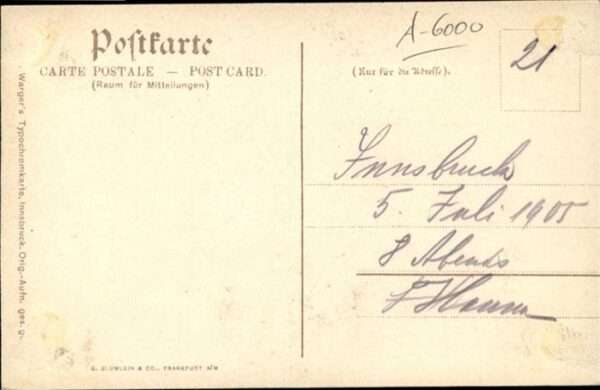 Postkarte
CARTE POSTALE — POST CARD.
(Raum für Mitteilungen)
A-6000
21
(Nur für die Adresse).
Innsbruck
5. Juli 1905
8 Abends
Warger's Typochromkarte, Innsbruck. Orig.-Aufn. ges. g.
& CO., FRANKFURT A/M